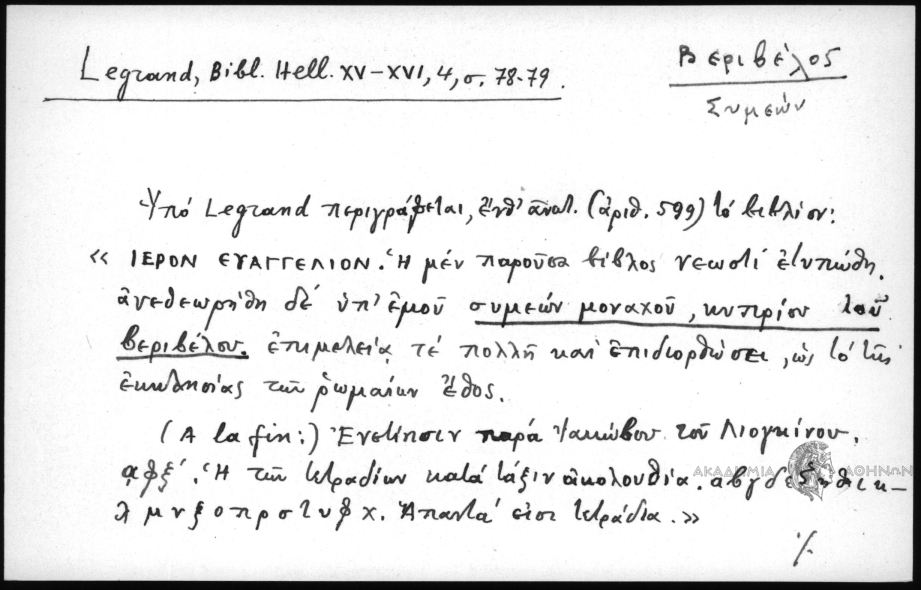 Legrand, Bibl. Hell. XV–XVI, 4, σ. 78-79.
Βεριβέλος
Συμεών
Ὑπό Legrand περιγράφεται, ἐνθ' ἀνωτ. (ἀριθ. 599) τό βιβλίον:
« ΙΕΡΟΝ ΕΥΑΓΓΕΛΙΟΝ. Ἡ μέν παροῦσα βίβλος νεωστί ἐτυπώθη.
ἀνεθεωρήθη δέ ὑπ' ἐμοῦ συμεών μοναχοῦ, κυπρίου τοῦ
βεριβέλου. ἐπιμελείᾳ τέ πολλῇ καί ἐπιδιορθώσει, ὡς τό τῆς
ἐκκλησίας τῶν ῥωμαίων ἔθος.
(A la fin:) Ἐνετίησιν παρά Ἰακώβου τοῦ Λιογκίνου.
αφξ´. Ἡ τῶν τετραδίων κατά τάξιν ἀκολουθία. αβγδεζηθικ–
λμνξοπρστυφχ. Ἅπαντά εἰσι τετράδια. »
ΑΚΑΔΗΜΙΑ ΑΘΗΝΩΝ
·/.